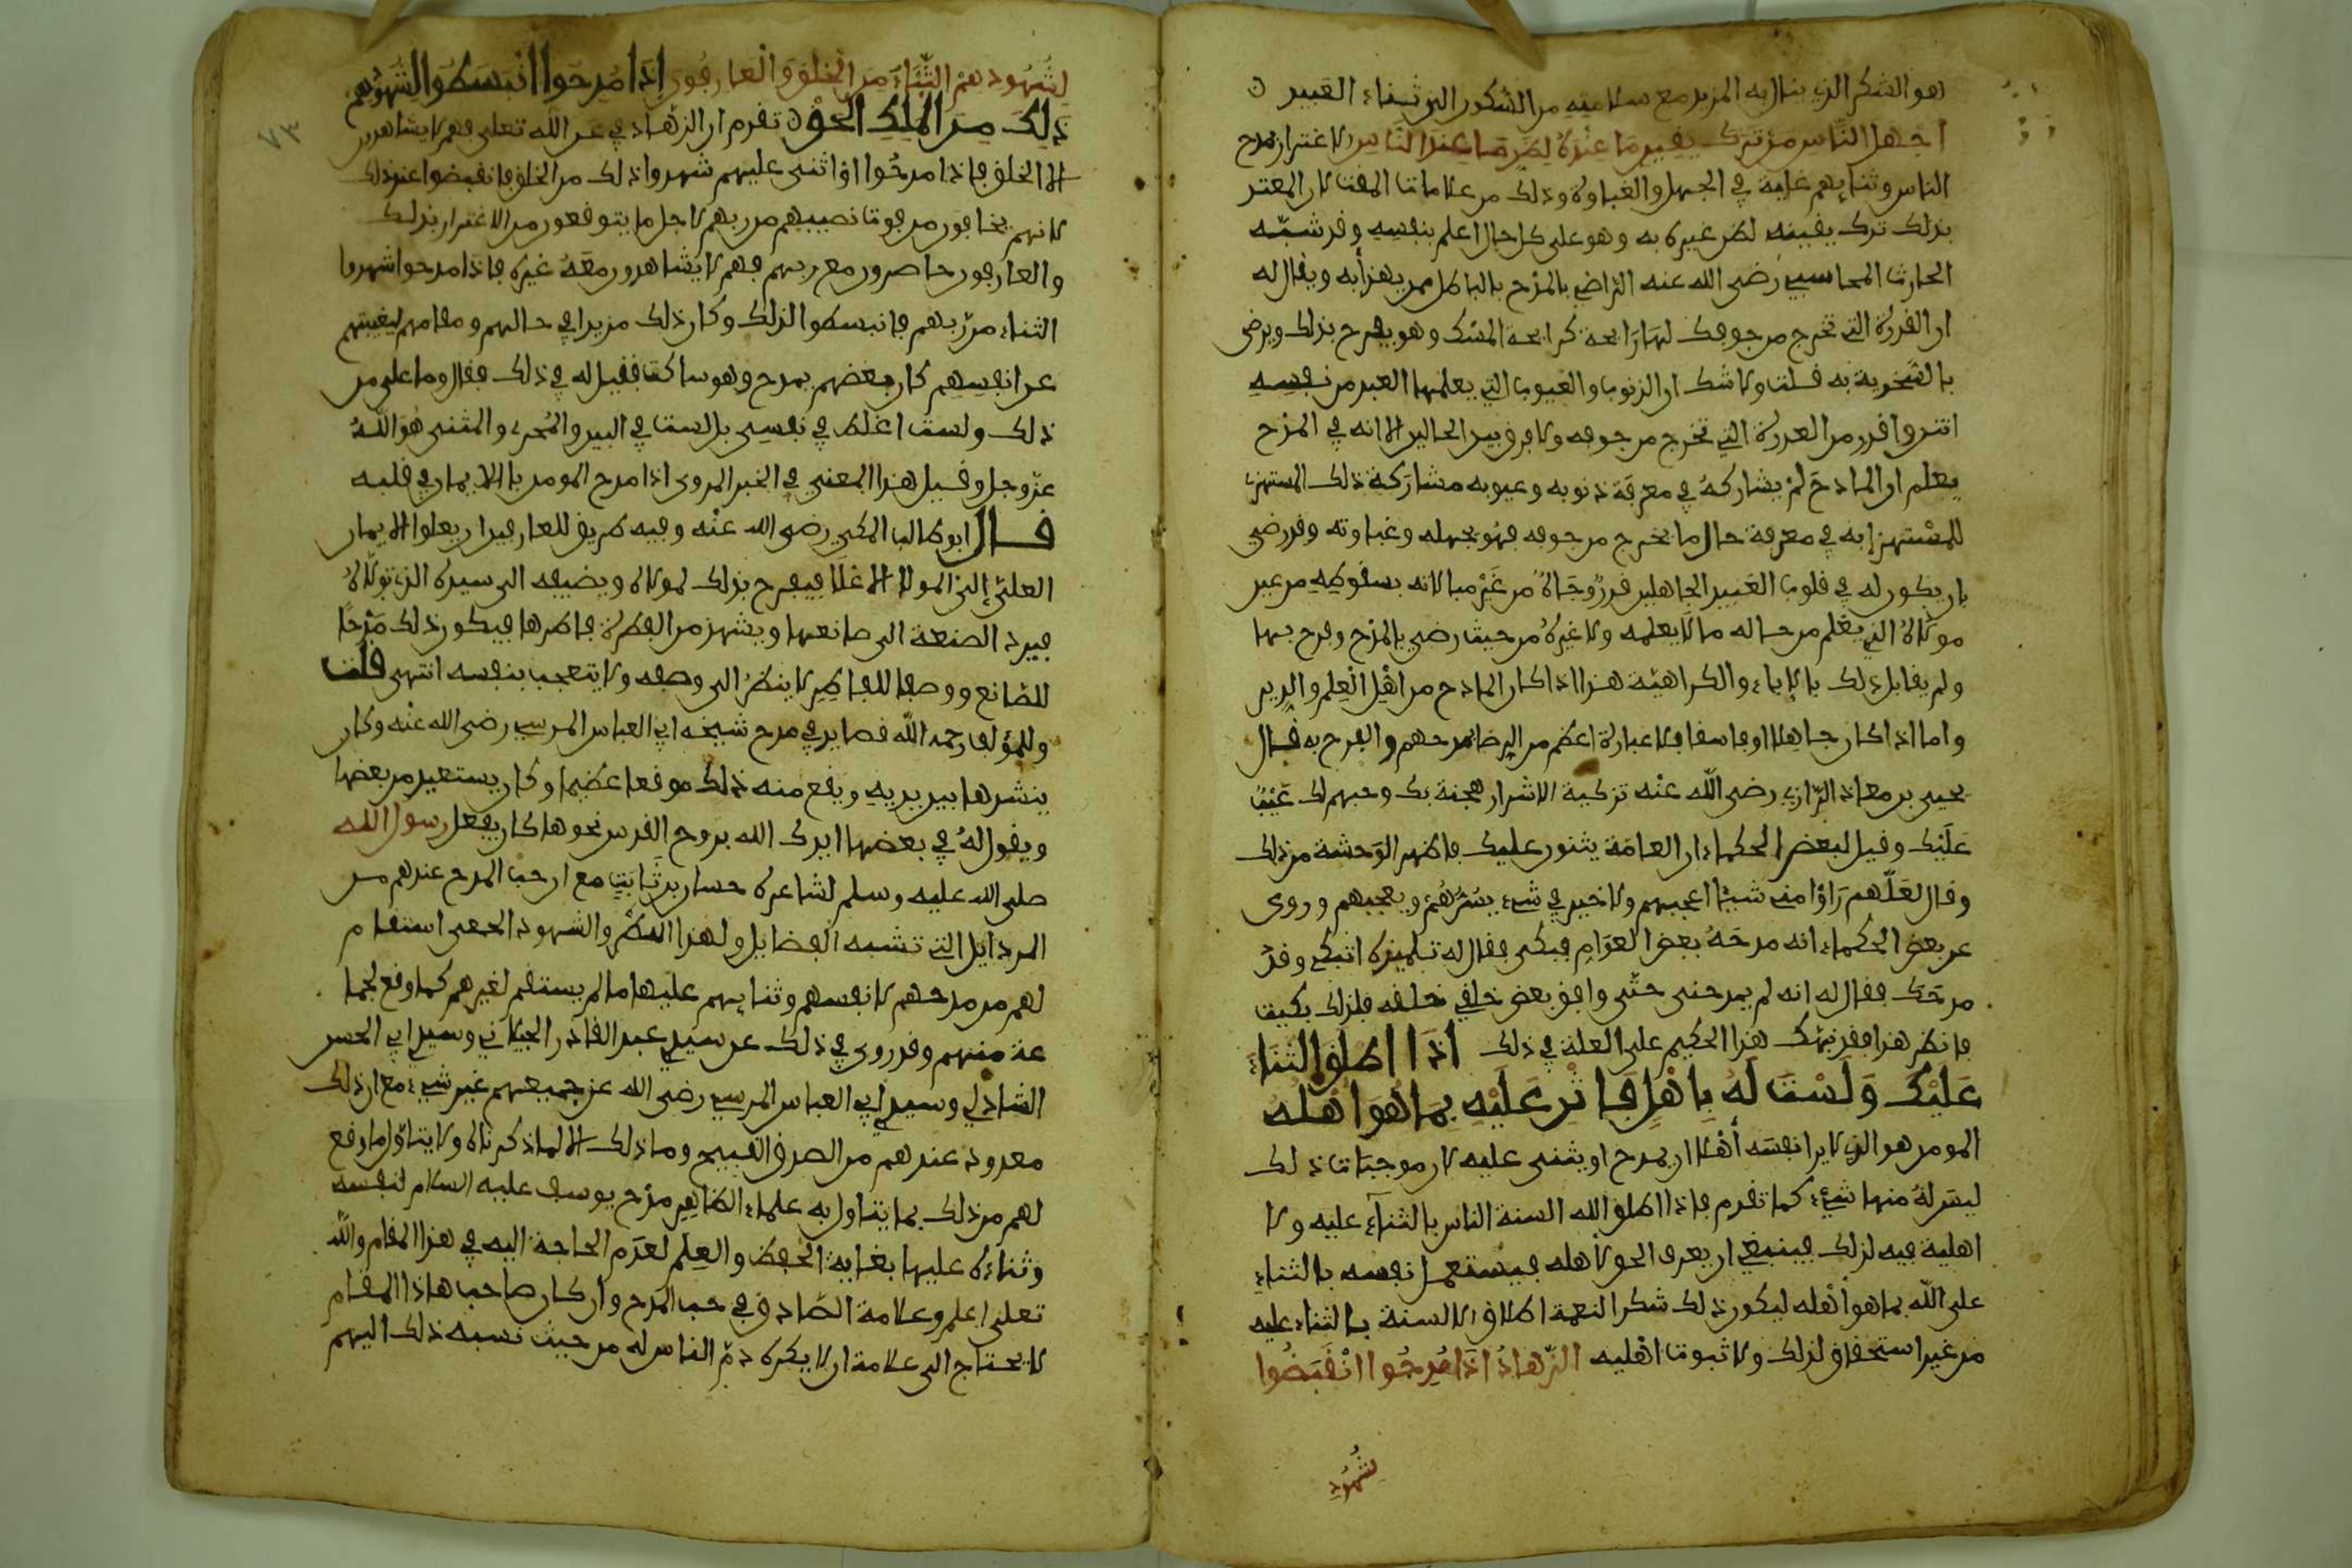 هو الشكر الذي ينال به المزيد مع سلامته من الشكور الى ثناء العبيد
أجهل الناس من ترك يقين ما عنده لظن ما عند الناس الاغترار بمدح
الناس وثنايهم غاية في الجهل والغباوة وذلك من علامات المقت لان المغتر
بذلك ترك يقينه لظن غيره به وهو على كل حال اعلم بنفسه وقد شبه
الحارث المحاسبي رضى الله عنه الراضي بالمدح بالباطل بمن يهزأ به ويقال له
ان العذرة التي تخرج من جوفك لها رايحة كرايحة المسك وهو يفرح بذلك ويرضى
بالسخرية به قلت ولا شك ان الذنوب والعيوب التي يعلمها العبد من نفسه
انتن واقذر من العذرة التي تخرج من جوفه ولا فرق بين الحالين الا انه في المدح
يعلم ان المادح لم يشاركه في معرفة ذنوبه وعيوبه مشاركة ذلك المستهزئ
للمستهزإ به في معرفة حال ما يخرج من جوفه فهو بجهله وغباوته وقد رضي
بان يكون له في قلوب العبيد الجاهلين قدر وجاه من غير مبالاته بسقوطه من عين
مولاه الذي يعلم من حاله ما لا يعلمه ولا غيره من حيث رضي بالمدح وفرح بها
ولم يقابل ذلك بالاباء والكراهية هذا اذا كان المادح من اهل العلم والدين
واما اذا كان جاهلا او فاسقا فلا عبارة اعظم من الرضا بمدحهم والفرح به قال
يحيى بن معاذ الرازي رضى الله عنه تزكية الاشرار هجنة بك وحبهم لك عيب
عليك وقيل لبعض الحكماء ان العامة يثنون عليك فاظهر الوحشة من ذلك
وقال لعلهم رأوا مني شيئا اعجبهم ولا خير في شيء يسرهم ويعجبهم وروى
عن بعض الحكماء انه مدحه بعض العوام فبكى فقال له تلميذه اتبكي وقد
مدحك فقال له انه لم يمدحنى حتى وافق بعض خلقي خلقه فلذلك بكيت
فانظر هذا فقد نبهك هذا الحكيم على العلة في ذلك اذا اطلق الثناء
عليك ولست له باهل فاثن عليه بما هو اهله
المومن هو الذي لا يرا نفسه أهلا ان يمدح او يثنى عليه لان موجبات ذلك
ليس له منها شيء كما تقدم فاذا اطلق الله السنة الناس بالثناء عليه ولا
اهلية فيه لذلك فينبغي ان يعرف الحق لاهله فيستعمل نفسه بالثناء
على الله بما هو أهله ليكون ذلك شكرا لنعمة اطلاق الالسنة بالثناء عليه
من غير استحقاق لذلك ولا ثبوت اهليه الزهاد اذا مدحوا انقبضوا
لشهود
لشهودهم الثناء من الخلق والعارفون اذا مدحوا انبسطوا لشهودهم
ذلك من الملك الحق تقدم ان الزهاد في عن الله تعلى فهم لا يشاهدون
٧٣
الا الخلق فاذا مدحوا او اثنى عليهم شهدوا ذلك من الخلق فانقبضوا عند ذلك
لانهم يخافون من فوت نصيبهم من ربهم لاجل ما يتوقعون من الاغترار بذلك
والعارفون حاضرون مع ربهم فهم لا يشاهدون معه غيره فاذا مدحوا شهدوا
الثناء من ربهم فانبسطوا لذلك وكان ذلك مزيدا في حالهم ومقامهم لغيبتهم
عن انفسهم كان بعضهم يمدح وهو ساكت فقيل له في ذلك فقال وما على من
ذلك ولست اغلط في نفسى بل لست في البين والمجرى والمثنى هو الله
عز وجل وقيل هذا المعنى في الخبر المروى اذا مدح المومن ربا الايمان في قلبه
قال ابو طالب المكي رضى الله عنه وفيه طريق للعارفين ان يعلوا الايمان
العلي إلى المولا الاعلا فيفرح بذلك لمولاه ويضيفه الى سيده الذي تولاه
فيرد الصنعة الى صانعها ويشهد من الفطرة فاطرها فيكون ذلك مدحا
للصانع ووصفا للفاطر لا ينظر الى وصفه ولا يتعجب بنفسه انتهى قلت
وللمؤلف رحمه الله قصايد في مدح شيخه ابي العباس المرسي رضى الله عنه وكان
ينشدها بين يديه ويقع منه ذلك موقعا عظيما وكان يستعيد من بعضها
ويقول له في بعضها ايدك الله بروح القدس نحو ما كان يفعل رسول الله
صلى الله عليه وسلم لشاعره حسان بن ثابت مع ان حب المدح عندهم من
الرذايل التي تشبه الفضايل ولهذا النظر والشهود الجمعى استقام
لهم من مدحهم لانفسهم وثنايهم عليها ما لم يستقم لغيرهم كما وقع لجما
عة منهم وقد روى في ذلك عن سيدي عبد القادر الجيلاني وسيدي ابي الحسن
الشاذلي وسيدي ابي العباس المرسي رضى الله عن جميعهم غير شيء مع ان ذلك
معدود عندهم من الصدق القبيح وما ذلك الا لما ذكرناه ولا يتاول ما وقع
لهم من ذلك بما يتاول به علماء الظاهر مدح يوسف عليه السلام لنفسه
وثناءه عليها بغاية الحفظ والعلم لعدم الحاجة اليه في هذا المقام والله
تعلى اعلم وعلامة الصادق في حب المدح وان كان صاحب هاذا المقام
لا يحتاج الى علامة ان لا يكره ذم الناس له من حيث نسبه ذلك اليهم